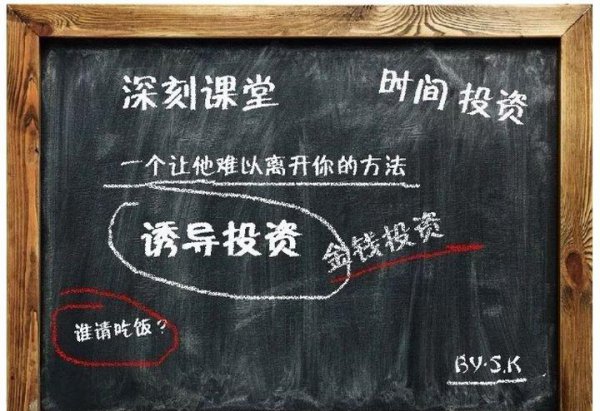 深刻课堂
时间投资
一个让他难以离开你的方法
诱导投资
金钱投资
谁请吃饭?
BY·S.K